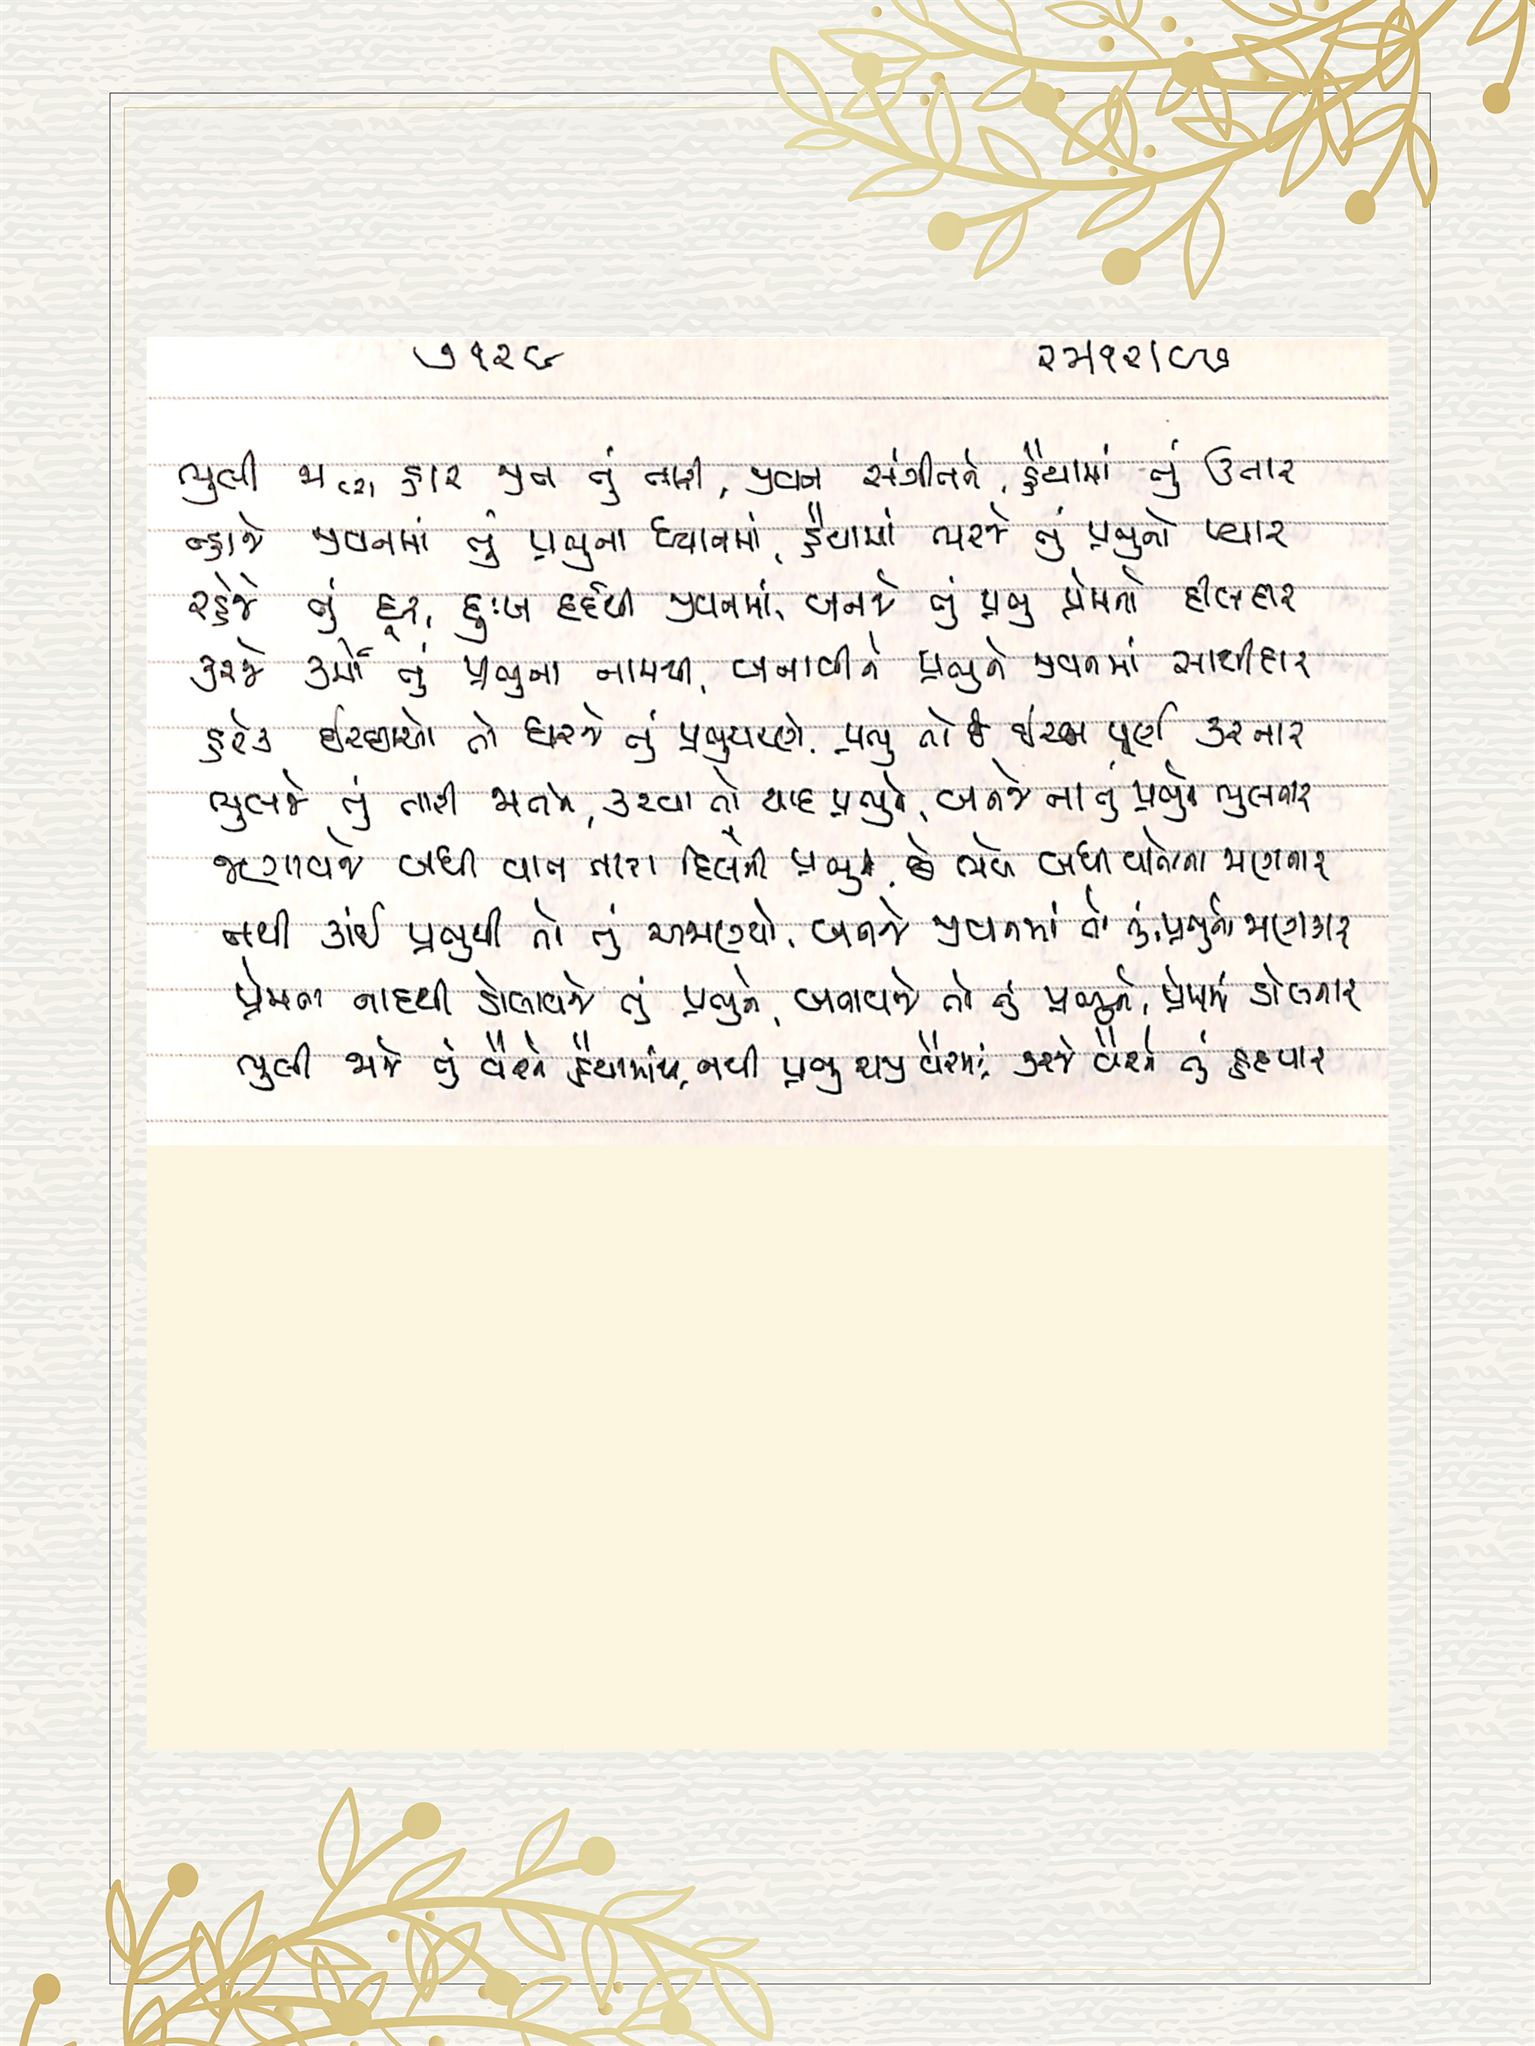 ૭૧૨૬
ભુલી જા હાર જીત તું તારી, જીવન સંગીતને, હૈયામાં તું ઉતાર
ન્હાજે જીવનમાં તું પ્રભુના ધ્યાનમાં, હૈયામાં ભરજે તું પ્રભુનો પ્યાર
રહેજે તું દૂર, દુઃખ દર્દથી જીવનમાં, બનજે તું પ્રભુ પ્રેમનો દીલદાર
કરજે કર્મો તું પ્રભુના નામથી, બનાવીને પ્રભુને જીવનમાં સાથીદાર
હરેક ઈચ્છાઓ તો ધરજે તું પ્રભુચરણે, પ્રભુ તો છે ઈચ્છા પૂર્ણ કરનાર
ભુલજે તું તારી જાતને, કરવા તો યાદ પ્રભુને, બનજે ના તું પ્રભુને ભુલનાર
જણાવજે બધી વાત તારા દિલની પ્રભુને, છે ભલે બધી વાતોના જાણનાર
નથી કાંઈ પ્રભુથી તો તું અજાણ્યો, બનજે જીવનમાં તો તું, પ્રભુનો જાણકાર
પ્રેમના નાદથી ડોલાવજે તું પ્રભુને, બનાવજે તો તું પ્રભુને, પ્રેમમાં ડોલનાર
ભુલી જાજે તું વૈરને હૈયામાંથી, નથી પ્રભુ રાજી વૈરમાં, કરજે વૈરને તું હદપાર